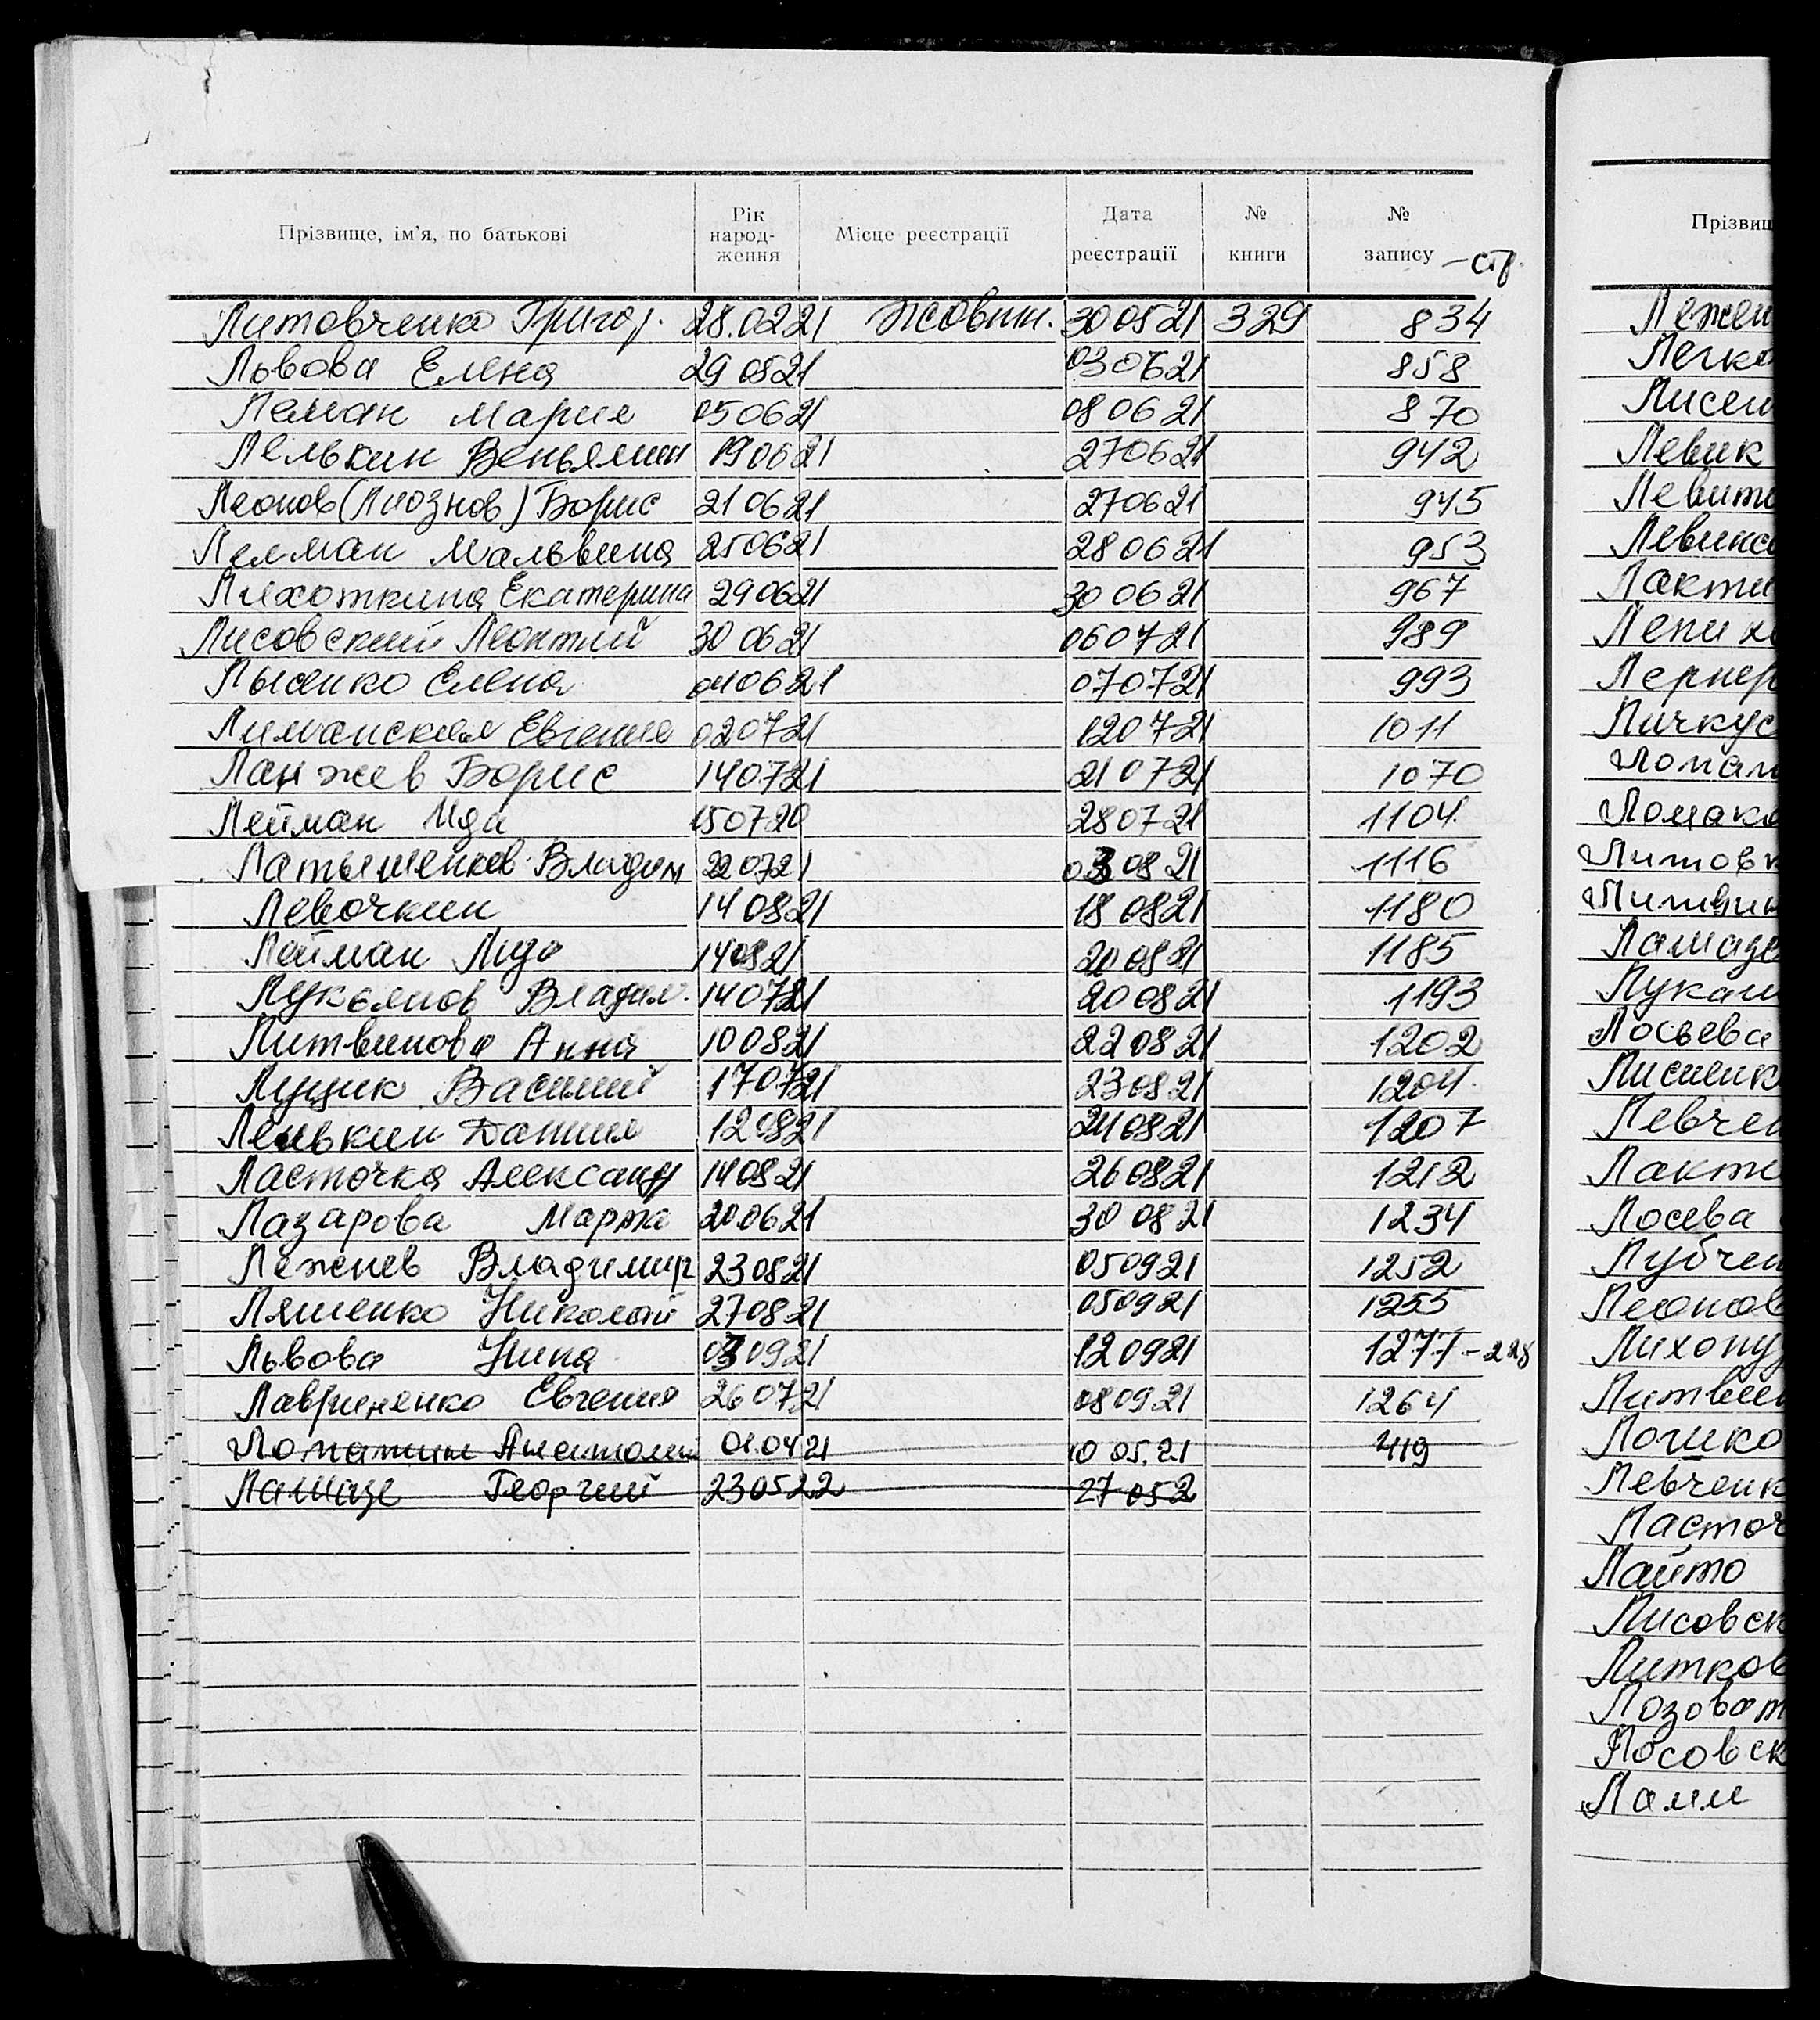 Прізвище, ім'я, по батькові Рік народження Місце реєстрації Дата реєстрації № книги № запису - стр.
Литовченко Григор. 28.02 21 Жовтн. 30 05 21 329 834
Львова Елена 29 05 21 03 06 21 858
Леман Мария 05 06 21 08 06 21 870
Лелькин Веньямин 19 06 21 27 06 21 942
Леонов (Лиознов) Борис 21 06 21 27 06 21 945
Лелман Мальвина 25 06 21 28 06 21 953
Лихоткина Екатерина 29 06 21 30 06 21 967
Лисовский Леонтий 30 06 21 06 07 21 989
Лысенко Елена 06 21 07 07 21 993
Лиманская Евгения 02 07 21 12 07 21 1011
Ланжев Борис 14 07 21 21 07 21 1070
Лейман Ида 15 07 20 28 07 21 1104
Латышенков Владим 22 07 21 03 08 21 1116
Левочкин 14 08 21 18 08 21 1180
Лейман Лида 14 08 21 20 08 21 1185
Лукьянов Владим. 14 07 21 20 08 21 1193
Литвинова Анна 10 08 21 22 08 21 1202
Луцик Василий 17 07 21 23 08 21 1204
Ленькин Даниил 12 08 21 24 08 21 1207
Ласточка Александ 14 08 21 26 08 21 1212
Лазарова Марта 20 06 21 30 08 21 1234
Лежнев Владимир 23 08 21 05 09 21 1252
Ляшенко Николай 27 08 21 05 09 21 1255
Львова Нина 03 09 21 12 09 21 1277 - 228
Лавриненко Евгения 26 07 21 08 09 21 1264
Лопатин Анатолий 01.04 21 10 05. 21 719
Лашазе Георгий 23 05 22 27 05 2
Прізвищ
Лежен
Легко
Лисен
Левик
Левит
Левинс
Лакти
Лепи
Лернер
Личкус
Ломан
Ломак
Литов
Литвин
Лашазе
Лукаш
Лосьева
Лисиенк
Левчен
Лакт
Лосева
Лубчен
Леонов
Лихопу
Литвин
Лошко
Левченк
Ласточ
Лайто
Лисовск
Литков
Лозоват
Лосовск
Ламм